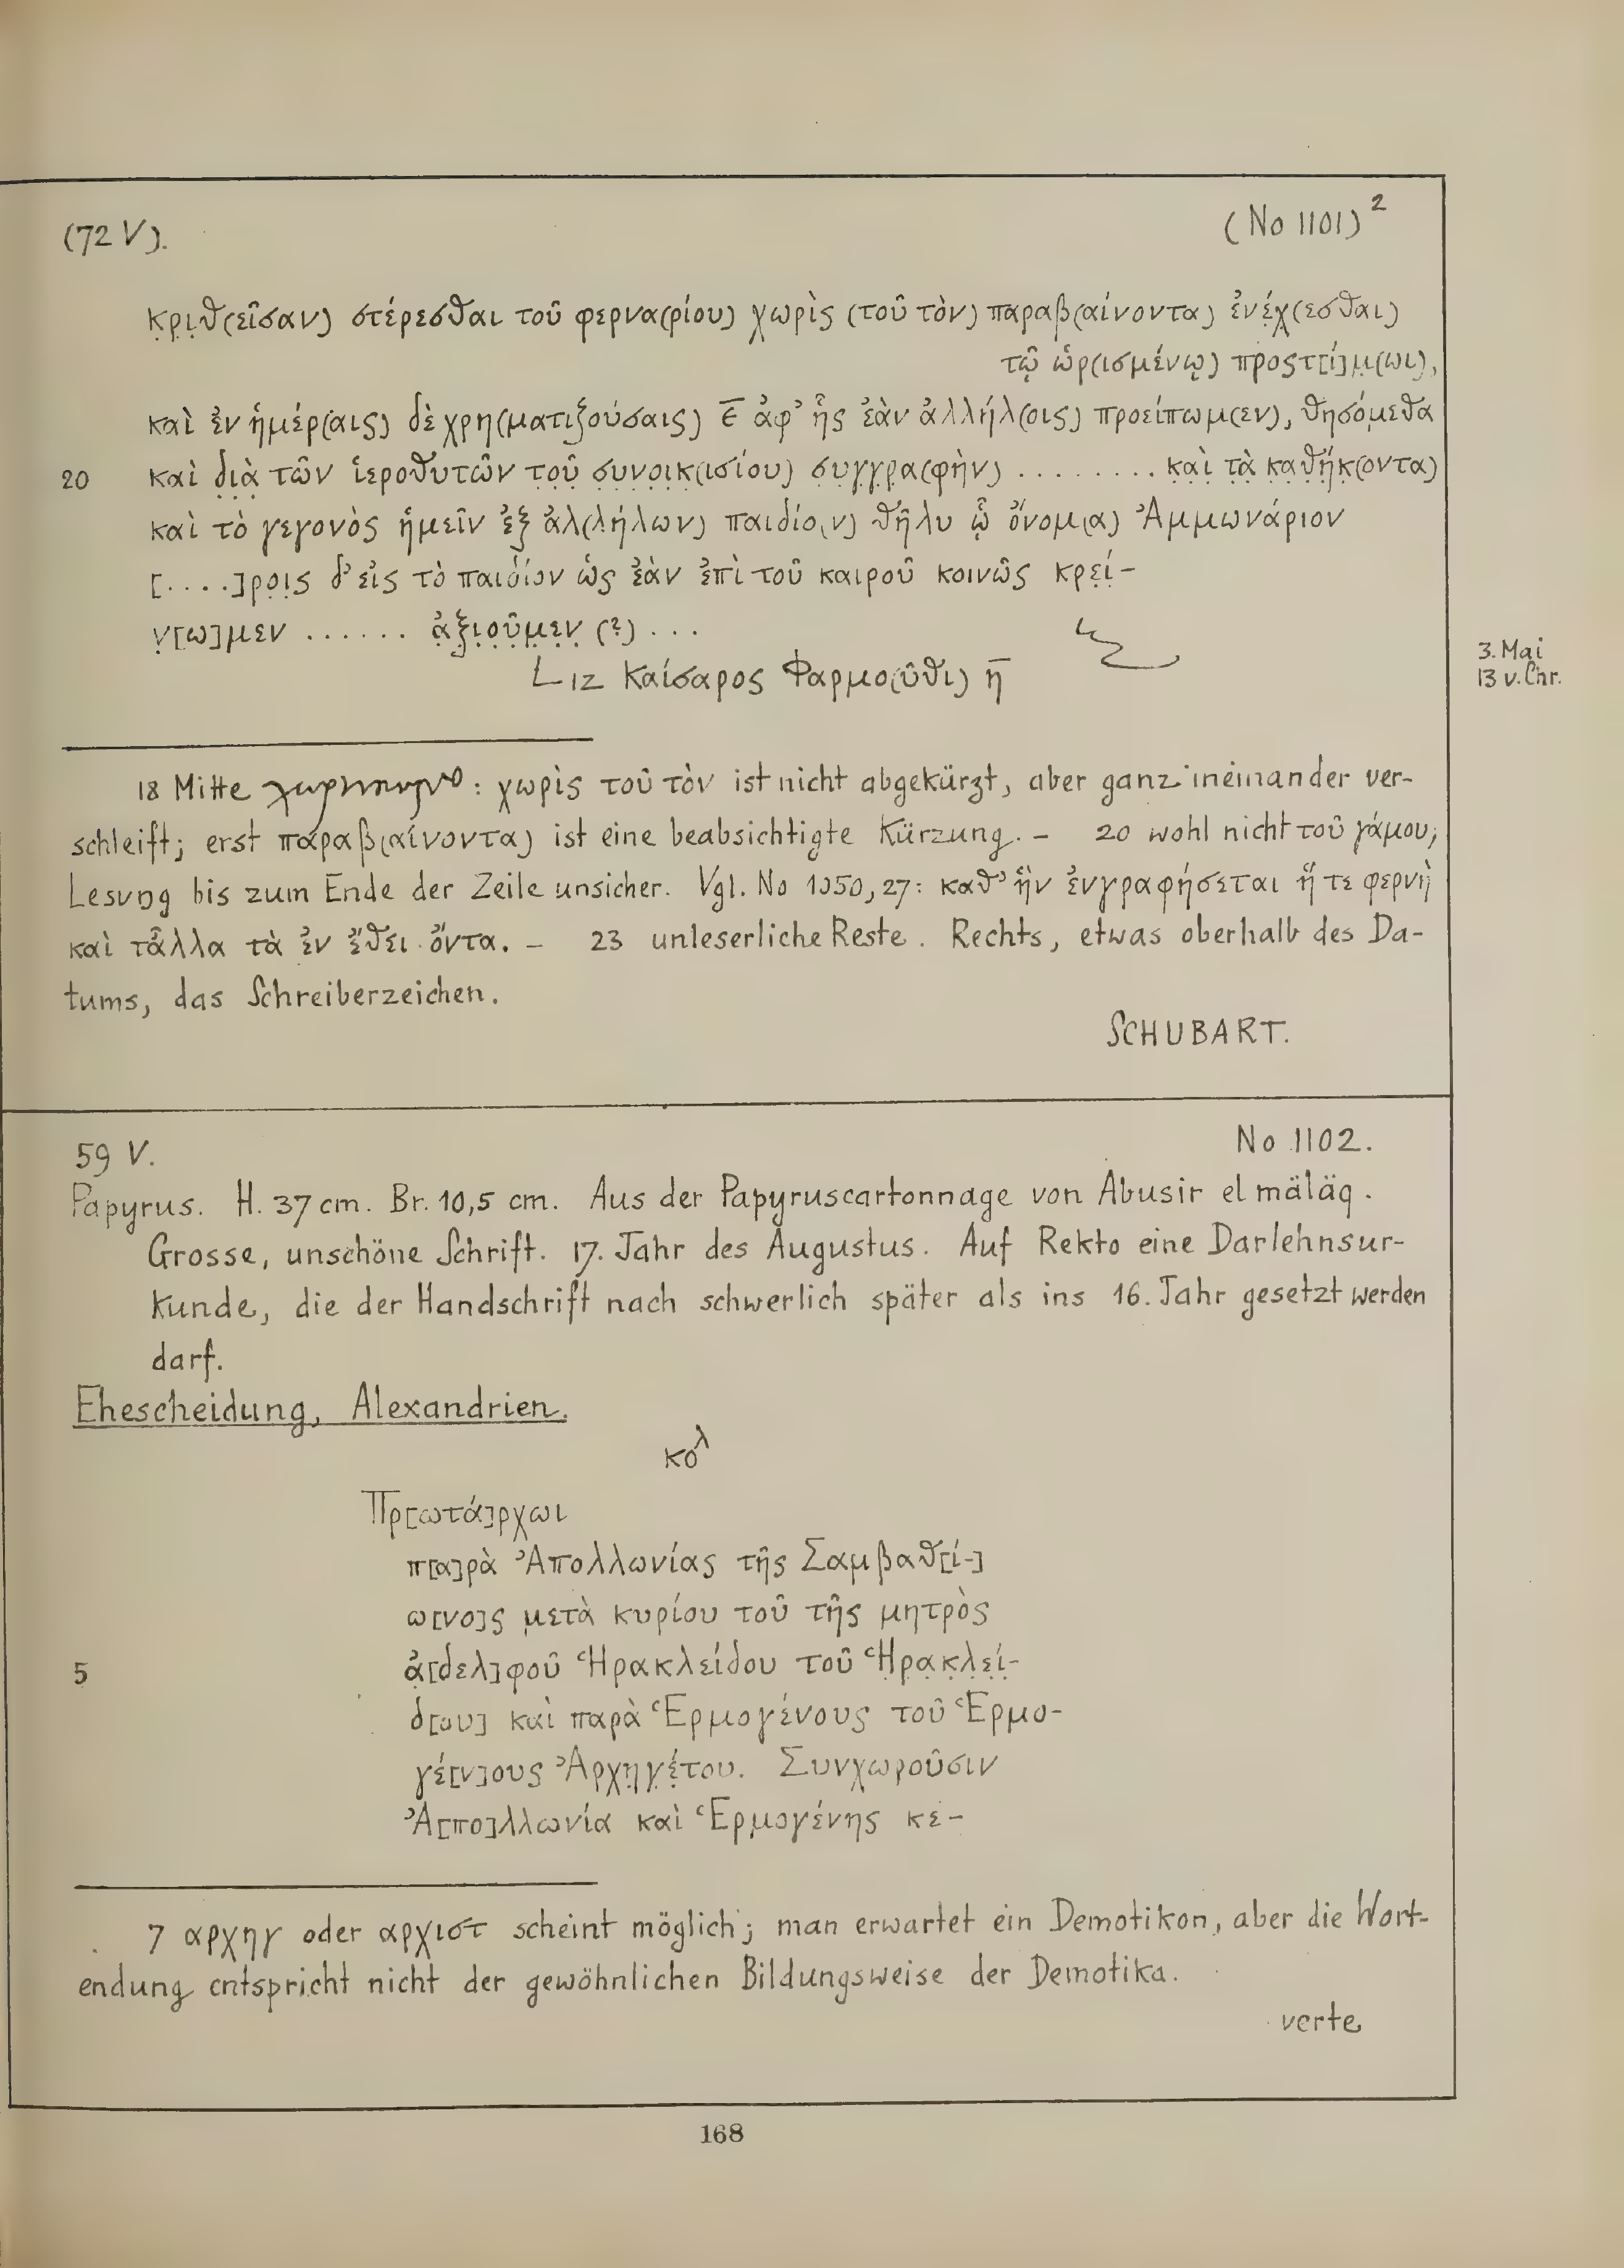 (72 V).
(No 1101)²
κ̣ρ̣ι̣θ(εῖσαν) στέρεσθαι τοῦ φερνα(ρίου) χωρὶς (τοῦ τὸν) παραβ(αίνοντα) ἐνέ̣χ(εσθαι)
τῷ ὡρ(ισμένῳ) προςτ[ί]μ̣(ωι),
καὶ ἐν ἡμέρ(αις) δὲ χρη(ματιζούσαις) ε̅ ἀφ’ ἧς ἐὰν ἀλλήλ(οις) προείπωμ(εν), θησό̣μεθα
20 καὶ δ̣ι̣ὰ̣ τῶν ἱεροθυτῶν τ̣ο̣ῦ̣ σ̣υ̣ν̣ο̣ι̣κ̣(ισίου) σ̣υ̣γ̣γ̣ρ̣α̣(φὴν) ........ κ̣α̣ὶ̣ τ̣ὰ̣ κ̣α̣θ̣ή̣κ̣(οντα)
καὶ τὸ γεγονὸς ἡμεῖν ἐξ ἀλ(λήλων) παιδίο(ν) θῆλυ ᾧ ὄνομ(α) Ἀμμωνάριον
[....]ρ̣ο̣ι̣ς δ’ εἰς τὸ παιδίον ὡς ἐὰν ἐπὶ τοῦ καιροῦ κοινῶς κρ̣ε̣ί̣-
ν̣[ω]μεν ...... ἀ̣ξ̣ι̣ο̣ῦ̣μ̣ε̣ν̣ (?) ...
L ιζ Καίσαρος Φαρμο(ῦθι) η̅
3. Mai
13 v. Chr.
18 Mitte : χωρὶς τοῦ τὸν ist nicht abgekürzt, aber ganz ineinander ver-
schleift; erst παραβ(αίνοντα) ist eine beabsichtigte Kürzung. – 20 wohl nicht τοῦ γάμου;
Lesung bis zum Ende der Zeile unsicher. Vgl. No 1050,27: καθ’ ἣν ἐνγραφήσεται ἥ τε φερνὴ
καὶ τἆλλα τὰ ἐν ἔθει ὄντα. – 23 unleserliche Reste. Rechts, etwas oberhalb des Da-
tums, das Schreiberzeichen.
SCHUBART.
59 V.
No 1102.
Papyrus. H. 37 cm. Br. 10,5 cm. Aus der Papyruscartonnage von Abusir el mäläq.
Grosse, unschöne Schrift. 17. Jahr des Augustus. Auf Rekto eine Darlehnsur-
kunde, die der Handschrift nach schwerlich später als ins 16. Jahr gesetzt werden
darf.
Ehescheidung, Alexandrien.
κολ
Πρ[ωτά]ρχωι
π[α]ρὰ Ἀπολλωνίας τῆς Σαμβαθ[ί-]
ω[νο]ς μετὰ κυρίου τοῦ τῆς μητρὸς
5 ἀ̣[δελ]φοῦ Ἡρακλείδου τοῦ Ἡ̣ρ̣α̣κ̣λ̣ε̣ί̣-
δ[ου] καὶ παρὰ Ἑρμογένους τοῦ Ἑρμο-
γέ[ν]ους Ἀρχη̣γ̣έ̣του. Συνχωροῦσιν
Ἀ[πο]λλωνία καὶ Ἑρμογένης κε-
7 αρχηγ oder αρχιστ scheint möglich; man erwartet ein Demotikon, aber die Wort-
endung entspricht nicht der gewöhnlichen Bildungsweise der Demotika.
verte
168